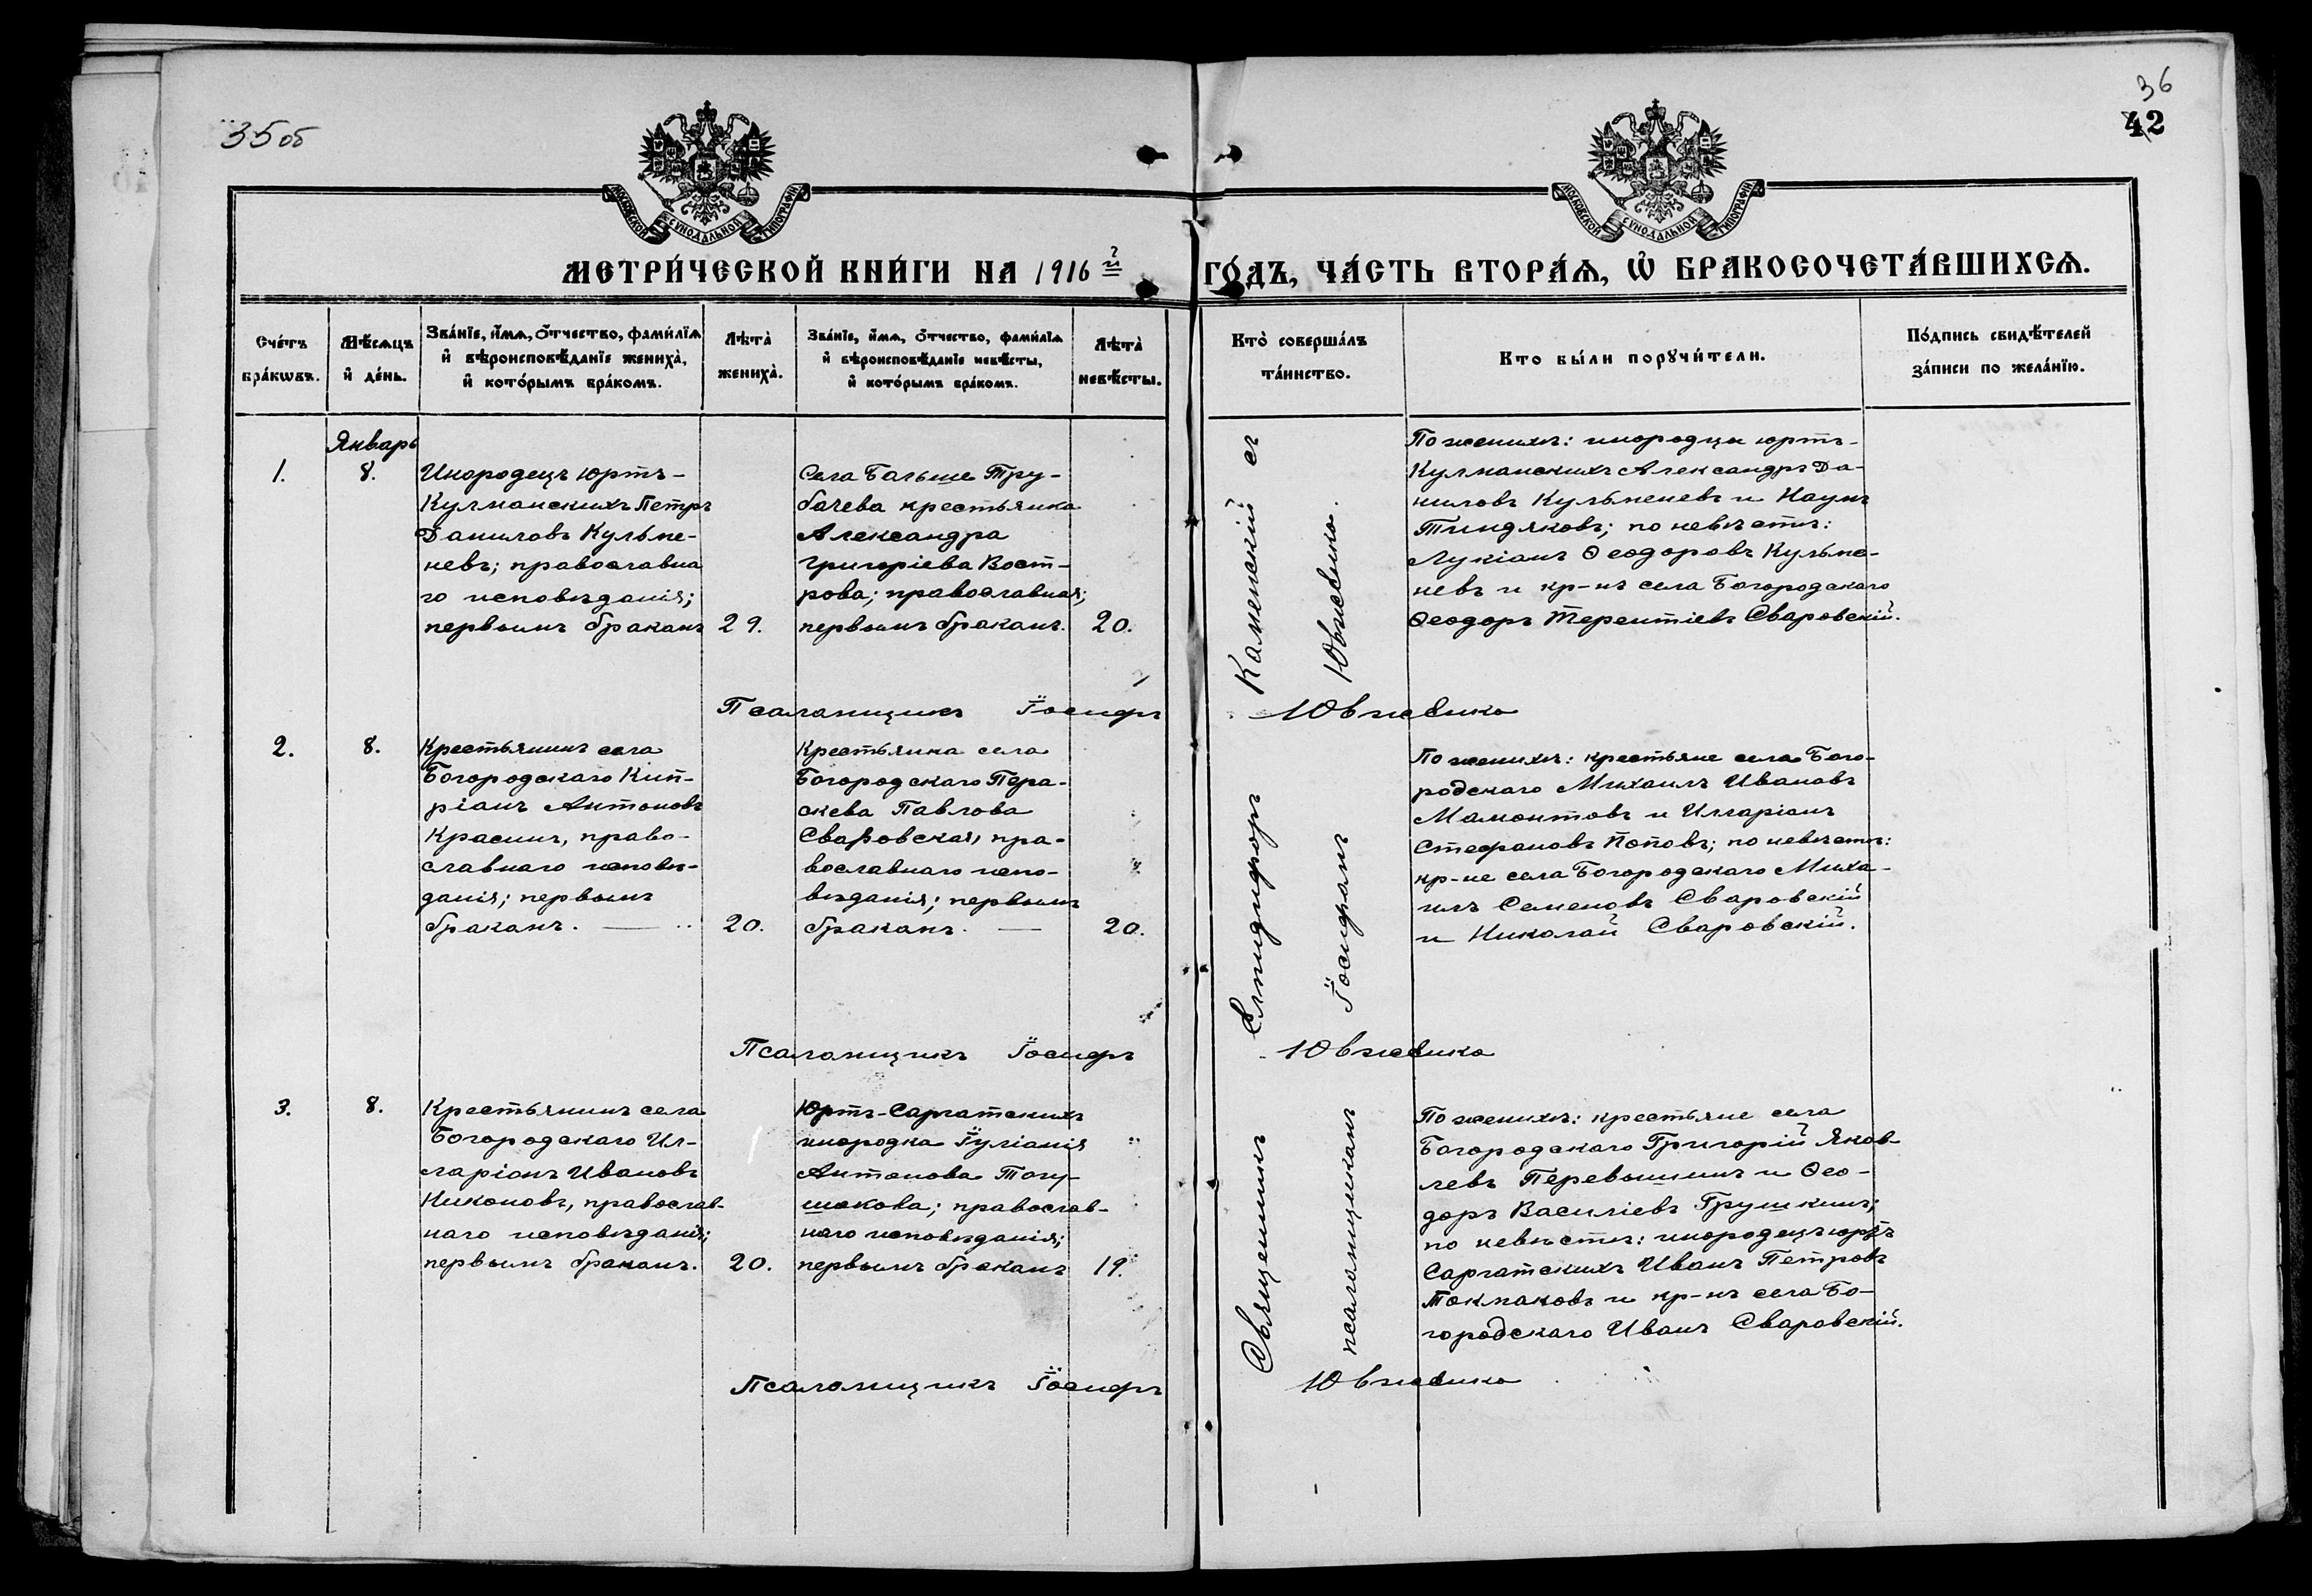 35 об
36
42
МОСКОВСКОЙ СѴНОДАЛЬНОЙ ТИПОГРАФІИ
МОСКОВСКОЙ СѴНОДАЛЬНОЙ ТИПОГРАФІИ
МЕТРИ́ЧЕСКОЙ КНИ́ГИ НА 1916 й ГО́ДЪ, ЧА́СТЬ ВТОРА́Ѧ, Ѡ҆ БРАКОСОЧЕТА́ВШИХСѦ.
Сче́тъ
бра́кѡвъ.
Мѣ́сѧцъ
и҆ де́нь.
Зва́нїе, и҆́мѧ, ѻ҆́тчество, фами́лїѧ
и҆ вѣроисповѣ́данїе жениха̀,
и҆ кото́рымъ бра́комъ.
Лѣ́та
жениха̀.
Зва́нїе, и҆́мѧ, ѻ҆́тчество, фами́лїѧ
и҆ вѣроисповѣ́данїе невѣ́сты,
и҆ кото́рымъ бра́комъ.
Лѣ́та
невѣ́сты.
Кто̀ соверша́лъ
та́инство.
Кто бы́ли порꙋчи́тели.
По́дпись свидѣ́телей
за́писи по жела́нїю.
Январь
1.
8.
Инородецъ юртъ-
Кулманскихъ Петръ
Даниловъ Кульме-
невъ; православна
го исповѣданія;
первымъ бракомъ
29.
Села Больше Тру-
бачева крестьянка
Александра
Григоріева Вост-
рова; православная;
первымъ бракомъ.
20.
По женихѣ: инородцы юртъ-
Кулманскихъ Александръ Да-
ниловъ Кульменевъ и Наумъ
Тиндяковъ; по невѣстѣ:
Лукіанъ Ѳеодоровъ Кульме-
невъ и кр-нъ села Богородскаго
Ѳеодоръ Терентіевъ Сваровскій.
Псаломщикъ Іосифъ Ювжевико
2.
8.
Крестьянинъ села
Богородскаго Кип-
ріанъ Антоновъ
Красинъ, право-
славнаго исповѣ-
данія; первымъ
бракомъ. —
20.
Крестьянка села
Богородскаго Пера-
скева Павлова
Сваровская, пра-
вославнаго испо-
вѣданія; первымъ
бракомъ. —
20.
По женихѣ: крестьяне села Бого-
родскаго Михаилъ Ивановъ
Мамонтовъ и Илларіонъ
Стефановъ Поповъ; по невѣстѣ:
кр-не села Богородскаго Миха-
илъ Семеновъ Сваровскій
и Николай Сваровскій.
Псаломщикъ Іосифъ Ювжевико
3.
8.
Крестьянинъ села
Богородскаго Ил-
ларіонъ Ивановъ
Никоновъ, православ-
наго исповѣданія;
первымъ бракомъ.
20.
Юртъ-Саргатскихъ
инородка Іуліанія
Антонова Тогу-
шакова; православ-
наго исповѣданія;
первымъ бракомъ
19.
По женихѣ: крестьяне села
Богородскаго Григорій Яков-
левъ Перевышинъ и Ѳео-
доръ Василіевъ Грушкинъ;
по невѣстѣ: инородецъ юртъ
Саргатскихъ Иванъ Петровъ
Токмаковъ и кр-нъ села Бо-
городскаго Иванъ Сваровскій.
Псаломщикъ Іосифъ Ювжевико
Священникъ Елпидифоръ Каменскій съ
псаломщикомъ Іосифомъ Ювжевико.